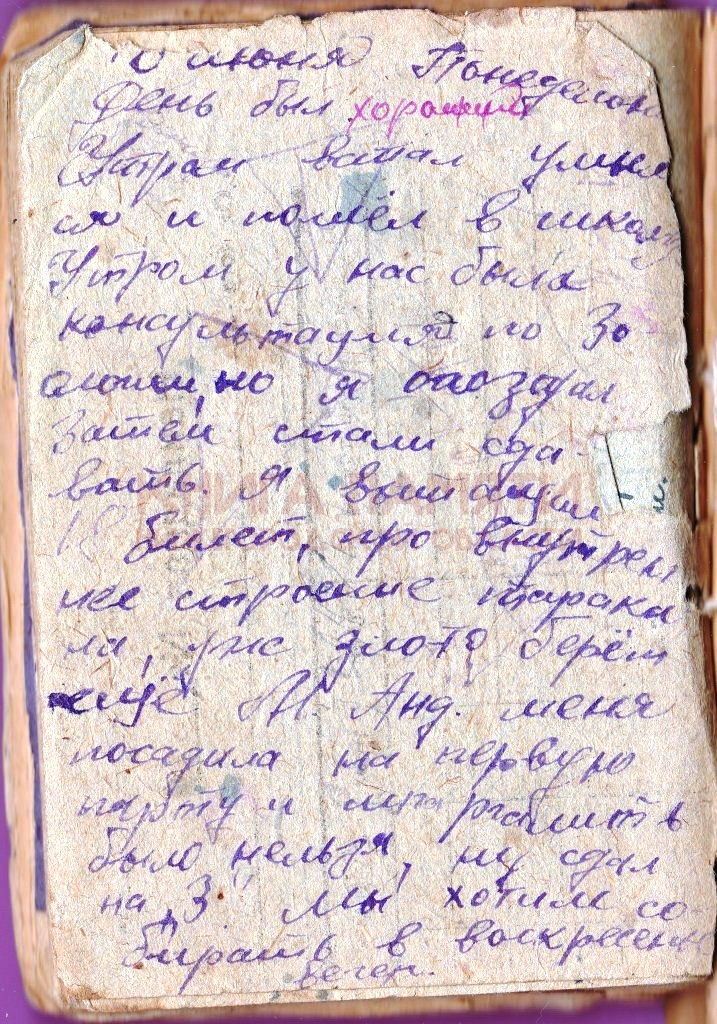 10 июня Понедельник
День был хороший
Утром встал умыл
ся и пошёл в школу
Утром у нас была
консультация по Зо-
ологии, но я опоздал
Затем стали сда-
вать. Я вытащил
18 билет, про внутрен
нее строение тарака
на, уж злото берёт
ещё М. Анд. меня
посадила на первую
парту и
было нельзя, ну сдал
на „3" Мы хотели со-
бирать в воскресение
вечер.